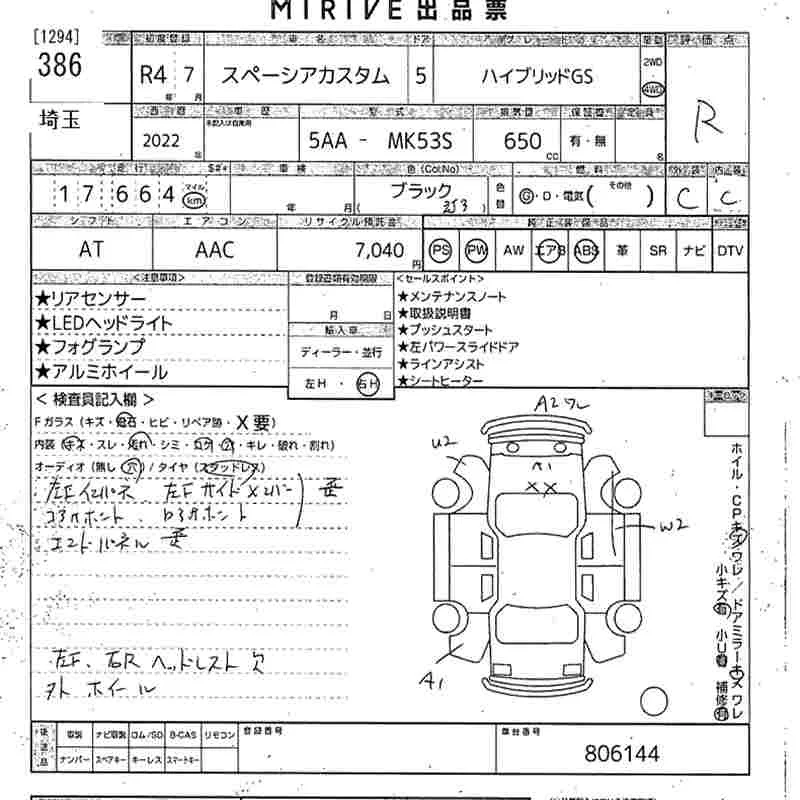 MIRIVE 出品票
[1294]
386
埼玉
初度登録 車名 ドア グレード 車型 評価点
R4 7 スペーシアカスタム 5 ハイブリッドGS 2WD 4WD R
年 月
車歴 型式 排気量
2022 5AA - MK53S 650 有・無
年 cc 名
走行 車検 色(Col.No) 燃料 外装 内装
17,664 マイル km 年 月 ブラック 色替 G・D・電気( その他 ) C C
シフト エアコン リサイクル預託金 純正装備品
AT AAC 7,040 円 PS PW AW エアB ABS 革 SR ナビ DTV
<注意事項> 登録書類有効期限 <セールスポイント>
★リアセンサー ★メンテナンスノート
★LEDヘッドライト 月 日 ★取扱説明書
★フォグランプ 輸入車 ★プッシュスタート
★アルミホイール ディーラー・並行 ★左パワースライドドア
左H ・ 右H ★ラインアシスト
★シートヒーター
< 検査員記入欄 >
Fガラス (キズ・飛石・ヒビ・リペア跡・X要)
内装 (キズ・スレ・汚れ・シミ・コゲ・穴・キレ・破れ・割れ)
オーディオ (無し・穴) / タイヤ (スタッドレス)
左Fインパネ 左Fサイドメンバー 歪
コアサポート ロアサポート
エンドパネル 歪
左F、右R ヘッドレスト 欠
社外 ホイール
A2ワレ
U2
A1
XX
W2
A1
ホイル・CPキズワレ/ドアミラーキズワレ
小キズ有 小U有 補修有
後送品 取説 ナビ取説 ロム/SD B-CAS リモコン 登録番号 車台番号
ナンバー スペアキー キーレス スマートキー 806144